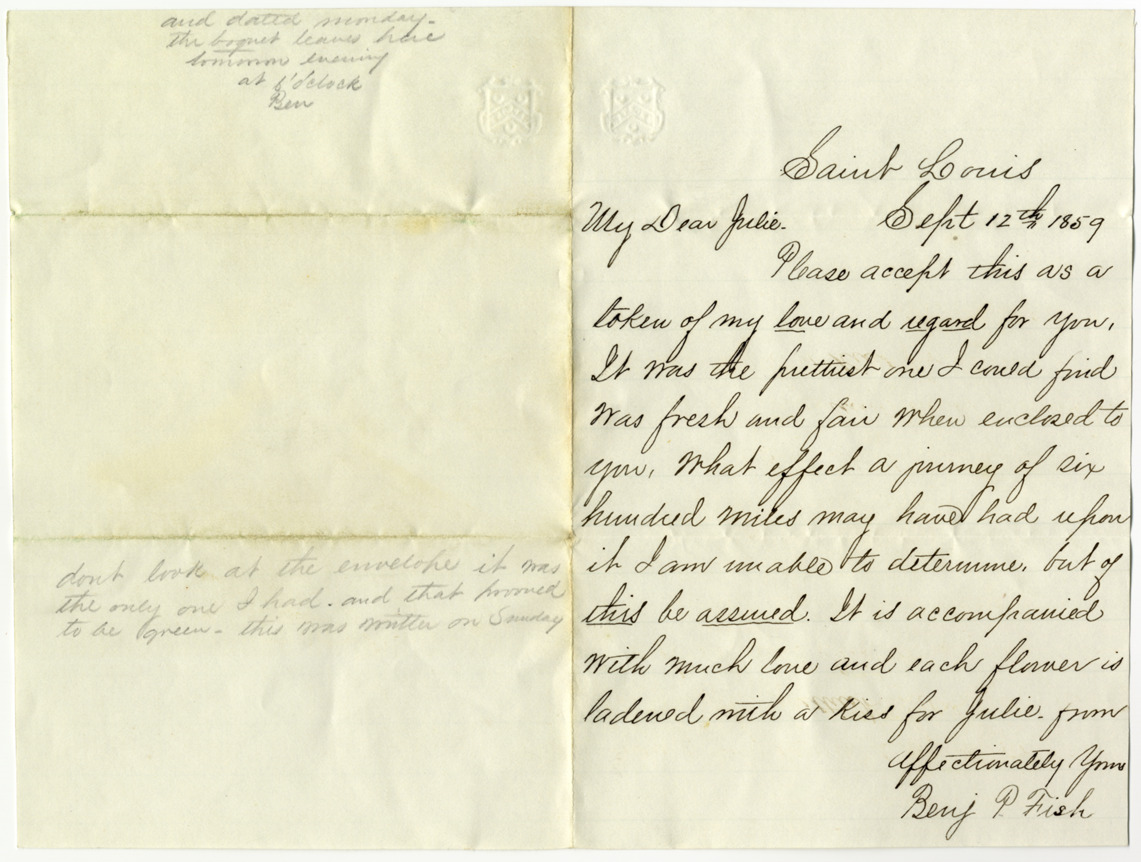 Saint Louis
My Dear Julie. Sept 12th 1859
Please accept this as a
token of my love and regard for you,
It was the prettiest one I could find
was fresh and fair when enclosed to
you, What effect a journey of six
hundred miles may have had upon
it I am unable to determine. but of
this be assured. It is accompanied
with much love and each flower is
ladened with a kiss for Julie. from
Affectionately Yours
Benj P. Fish
dont look at the envelope it was
the only one I had. and that proved
to be green - this was written on Sunday
and dated monday -
the boquet leaves here
tomorrow evening
at o'clock
Ben